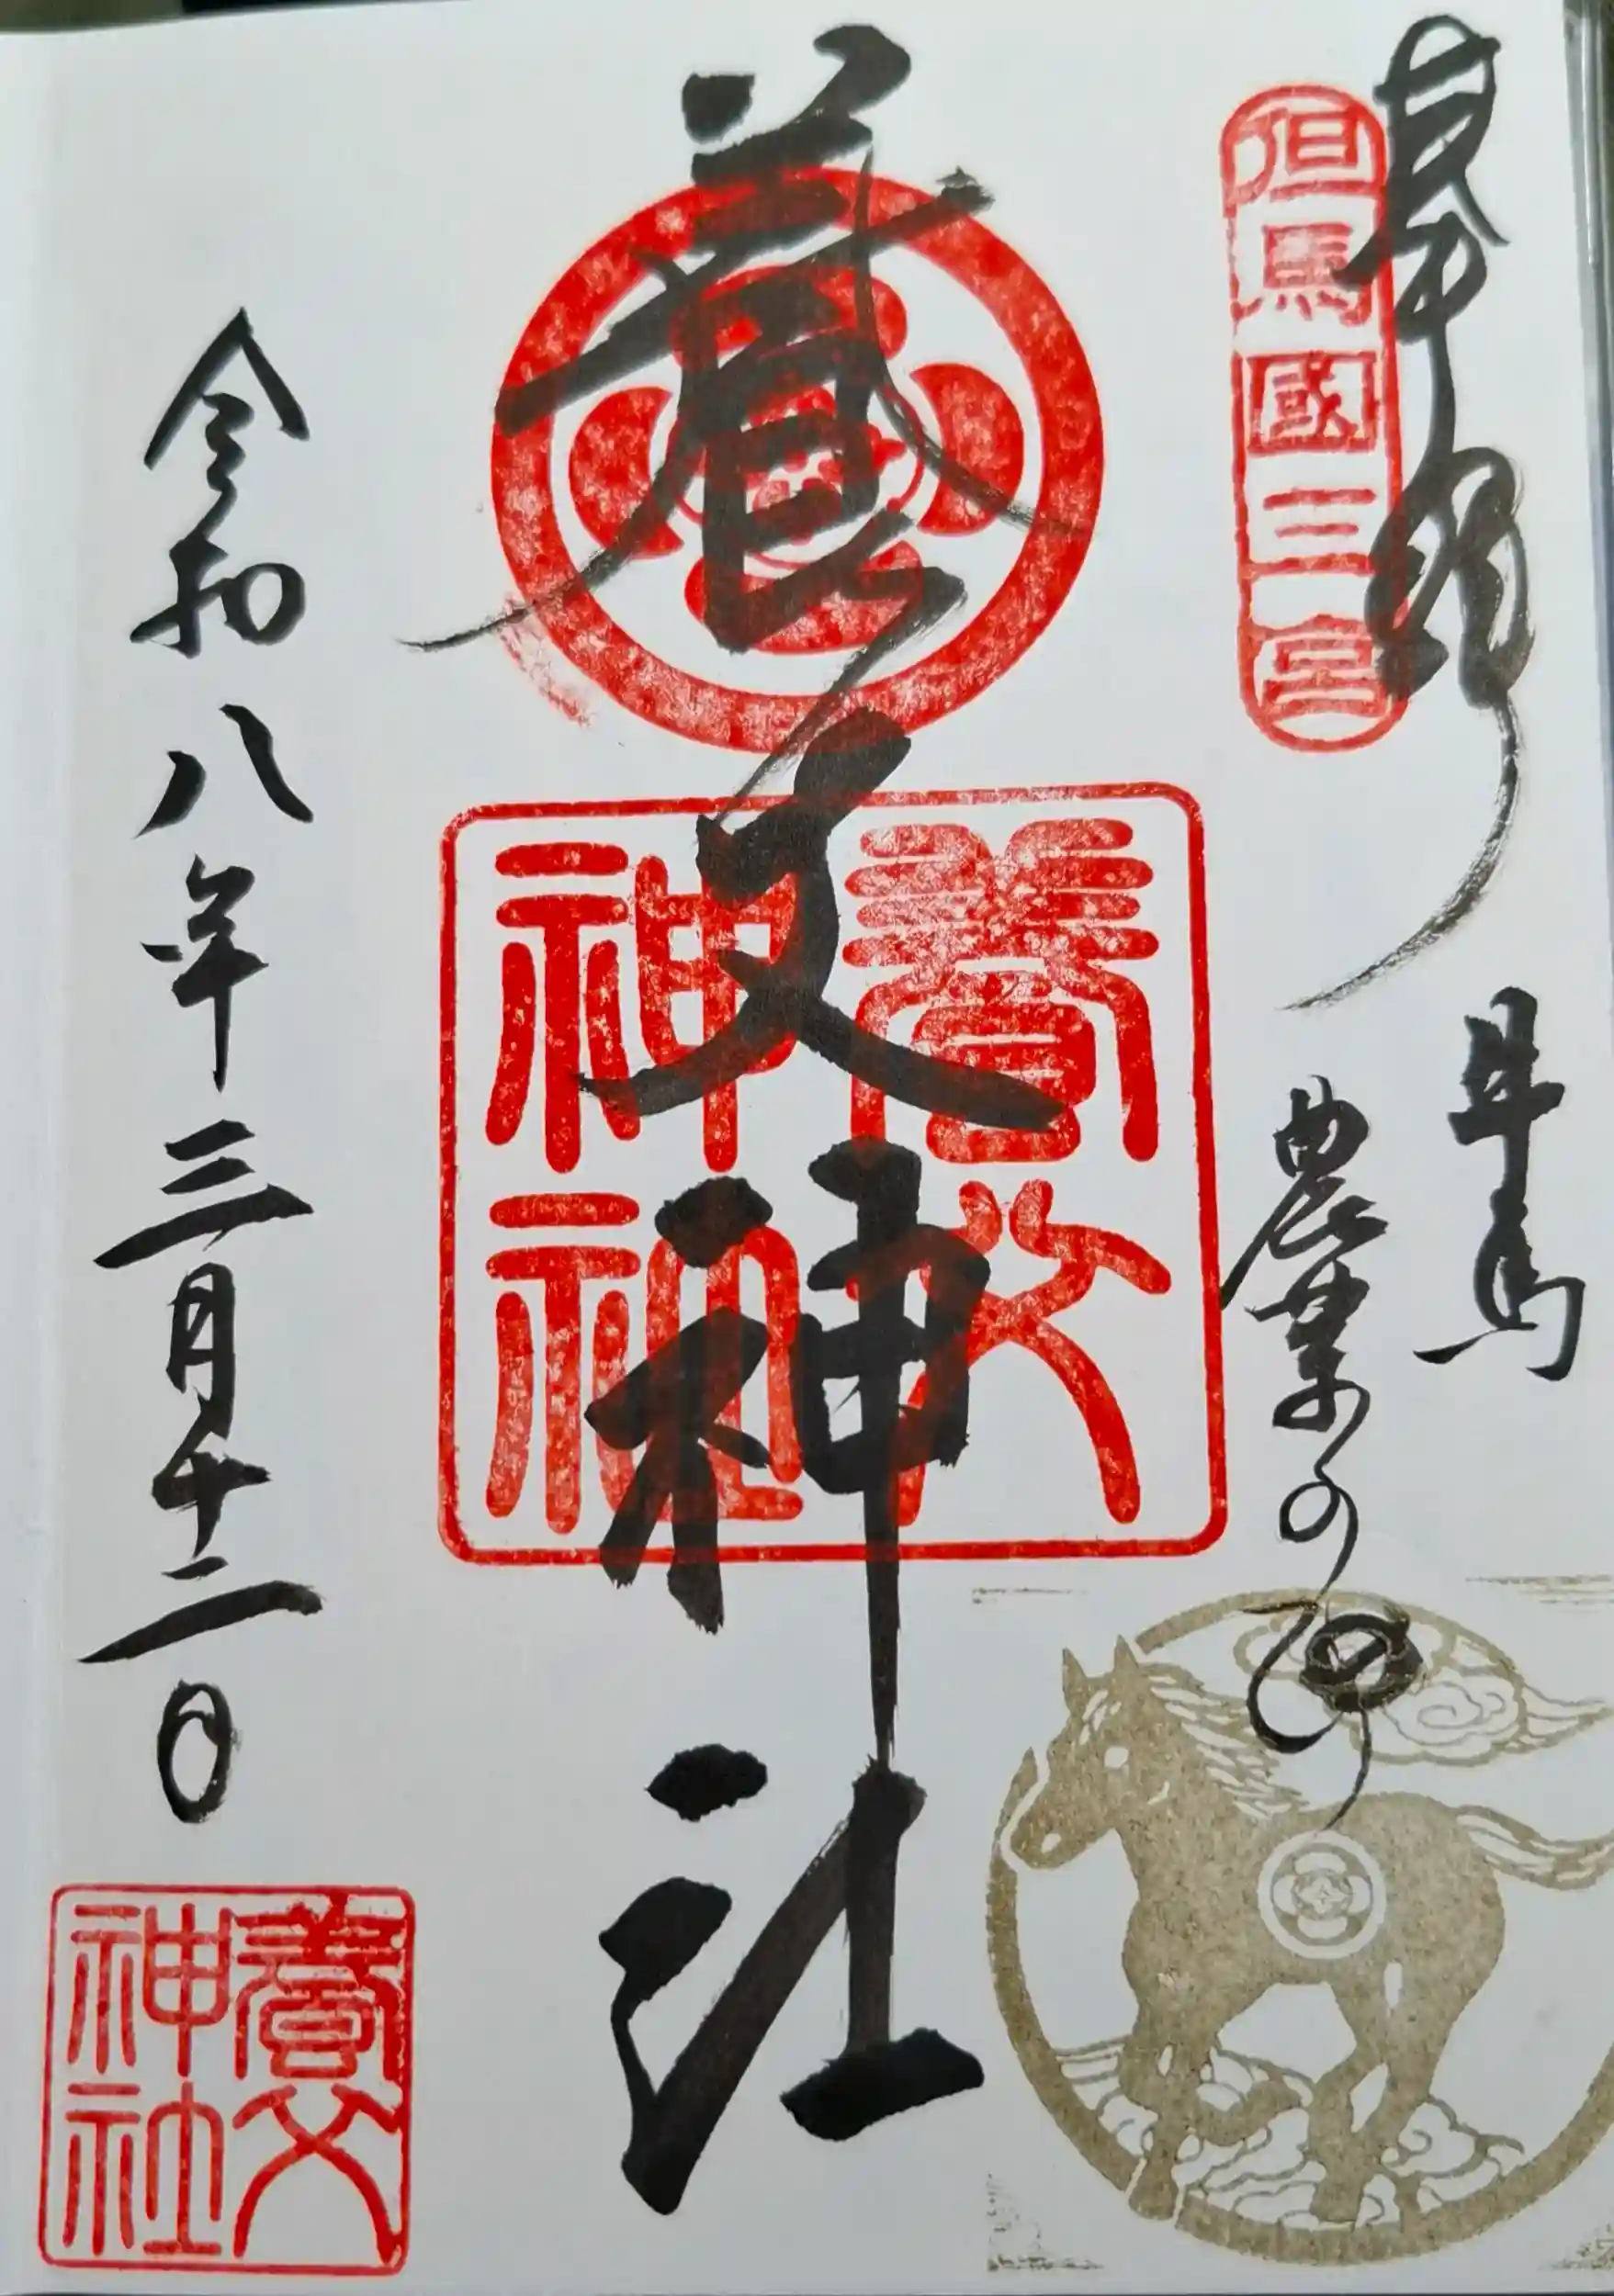 奉拝
但馬國三宮
農業の
養父神社
養父神社
令和八年三月十二日
養父神社